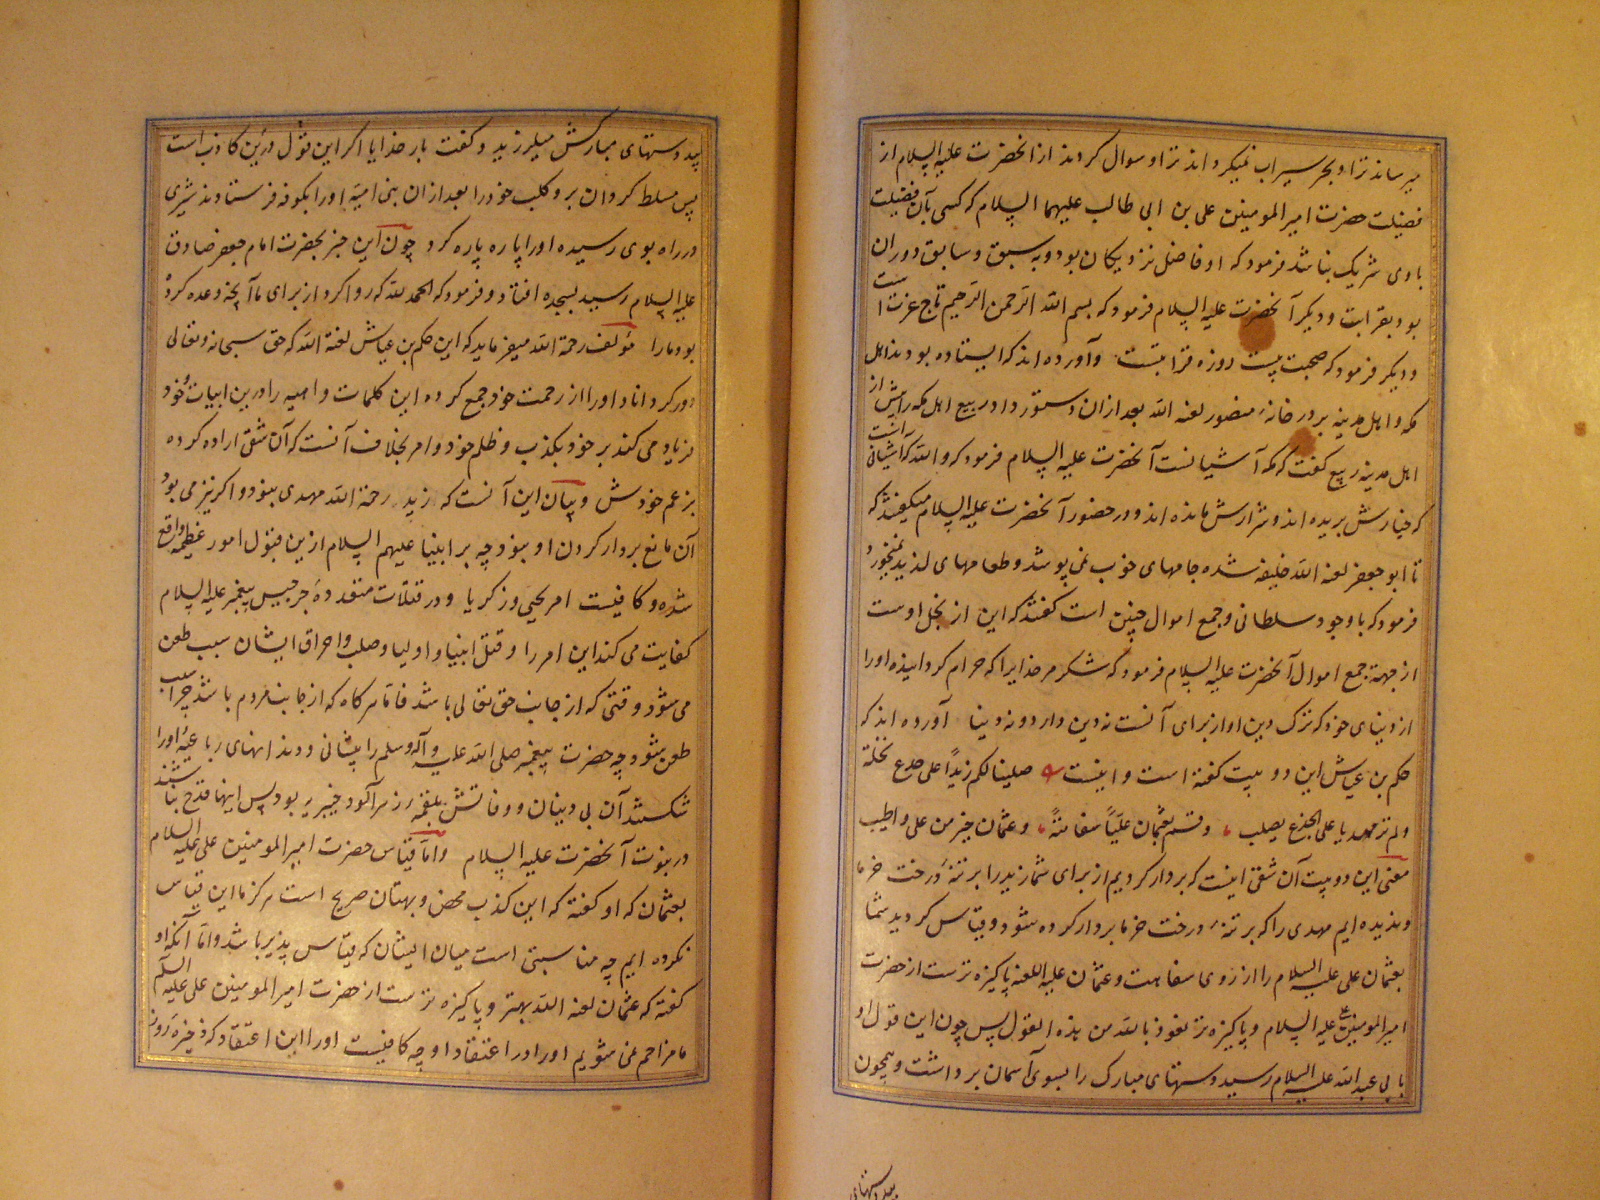 میرساند ترا و بحر سیراب نمیکرداند ترا و سوال کردند از انحضرت علیه السلام از
فضیلت حضرت امیرالمومنین علی بن ابی طالب علیهما السلام که کسی بآن فضیلت
با وی شریک نباشد فرمود که او فاضل نزدیکان بود و به سبق و سابق دوران
بود بقرابت و دیگر آنحضرت علیه السلام فرمود که بسم الله الرحمن الرحیم تاج عزت است
و دیگر فرمود که صحبت بیست روزه قرابتست و آورده اند که ایستاده بودند اهل
مکه و اهل مدینه بر در خانهٔ منصور لعنه الله بعد ازان دستور داد ربیع اهل مکه را پیش از
اهل مدینه ربیع گفت که مکه آشیانست آنحضرت علیه السلام فرمود که والله که آشیانی است
که خیارش پریده اند و شرارش مانده اند و در حضور آنحضرت علیه السلام میگفتند که
تا ابو جعفر لعنه الله خلیفه شده جامهای خوب نمی پوشد و طعامهای لذیذ نمیخورد
فرمود که با وجود سلطانی و جمع اموال چنین است گفتند که این از بخل اوست
از جهة جمع اموال آنحضرت علیه السلام فرمود که شکر مر خدایرا که حرام گردانیده او را
از دنیای خود که ترک دین او از برای آنست نه دین دارد و نه دنیا آورده اند که
حکم بن عیاش این دو بیت گفته است و اینست صلبنا لکم زیداً علی جذع نخلة
ولم نر مهدیا علی الجذع یصلب وقستم بعثمان علیاً سفاهةً وعثمان خیر من علی واطیب
معنی این دو بیت آن شقی اینست که بر دار کردیم از برای شما زید را بر تنهٔ درخت خرما
و ندیده ایم مهدی را که بر تنهٔ درخت خرما بر دار کرده شود و قیاس کردید شما
بعثمان علی علیه السلام را از روی سفاهت و عثمان علیه اللعنه پاکیزه ترست از حضرت
امیرالمومنین علی علیه السلام و پاکیزه تر نعوذ بالله من هذه القول پس چون این قول او
بابی عبد الله علیه السلام رسید دستهای مبارک را بسوی آسمان برداشت و همچون
بید دستهای
بید دستهای مبارکش میلرزید و گفت بار خدایا اگر این قول درین کاذب است
پس مسلط گردان برو کلب خود را بعد ازان بنی امیه او را بکوفه فرستادند شیری
در راه بوی رسیده او را پاره پاره کرد چون این خبر بحضرت امام جعفر صادق
علیه السلام رسید بسجده افتاد و فرمود که الحمد لله که روا کرد از برای ما آنچه وعده کرده
بود ما را مؤلف رحمة الله میفرماید که این حکم بن عیاش لعنة الله که حق سبحانه و تعالی
دور گرداناد او را از رحمت خود جمع کرده این کلمات واهیه را درین ابیات خود
فریاد می کند بر خود بکذب و ظلم خود و امر بخلاف آنست که آن شقی اراده کرده
بزعم خودش و بیان این آنست که زید رحمة الله مهدی نبود و اگر نیز می بود
آن مانع بر دار کردن او نبود چه بر انبیا علیهم السلام ازین قبول امور عظیمه واقع
شده و کافیست امر یحیی و زکریا و در قتلات متعددهٔ جرجیس پیغمبر علیه السلام
کفایت می کند این امر را و قتل انبیا و اولیا و صلب و احراق ایشان سبب طعن
می شود وقتی که از جانب حق تعالی باشد فاما هرگاه که از جانب مردم باشد چرا سبب
طعن شود چه حضرت پیغمبر صلی الله علیه و آله وسلم را پیشانی و دندانهای رباعیه او را
شکستند آن بی دینان و وفاتش بلقمه زهرآلود خیبریه بود پس اینها قدح نباشند
در نبوت آنحضرت علیه السلام و اما قیاس حضرت امیرالمومنین علی علیه السلام
بعثمان که او گفته که این کذب محض و بهتان صریح است هرگز ما این قیاس
نکرده ایم چه مناسبتی است میان ایشان که قیاس پذیر باشد و اما آنکه او
گفته که عثمان لعنه الله بهتر و پاکیزه ترست از حضرت امیرالمومنین علی علیه السلم
ما مزاحم نمی شویم او را در اعتقاد او چه کافیست او را این اعتقاد که ذخیره روز